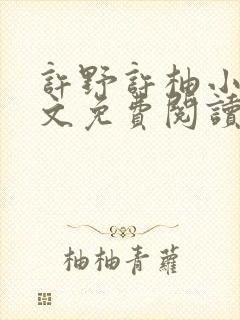 許野許柚小
文免費閱讀
柚柚青蘿